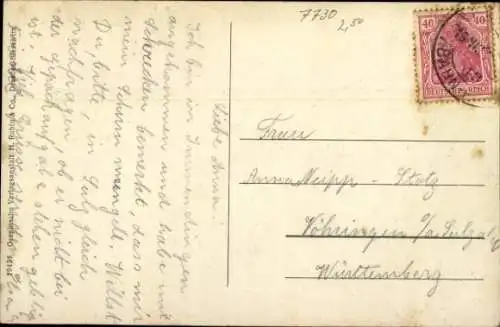 7730
2,50
40 40
DEUTSCHES REICH
Liebe Anna!
Ich bin in Immendingen
angekommen und habe mit
Schrecken bemerkt, dass mir
mein Schirm mangelt. Willst
Du, bitte, in Sulz gleich
nachfragen, ob er nicht bei
der Gepäckaufgabe stehen geblieb.
ist. Viele Grüsse
Frau
Anna Neipp - Stotz
Vöhringen O/A Sulz a/N
Württemberg